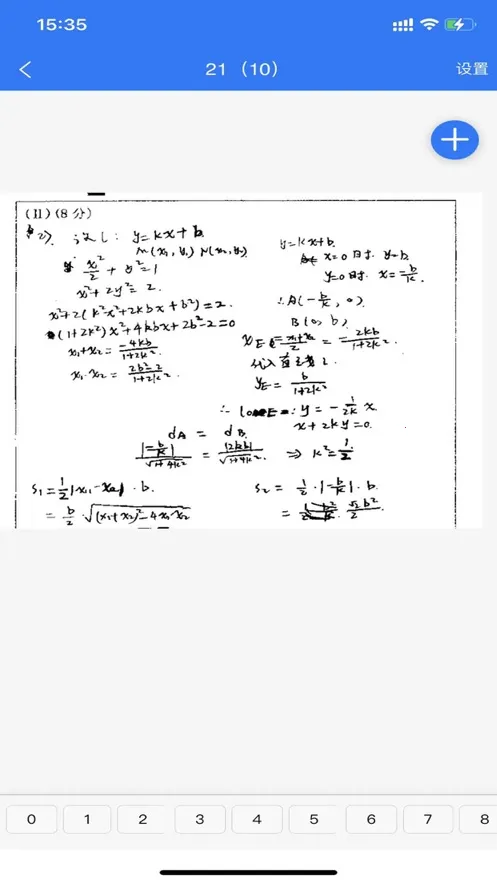 15:35
21（10） 设置
(II)(8分)
(2) 设 l: y=kx+b.
M(x₁, y₁) N(x₂, y₂)
x²/2 + y²=1
x²+2y²=2.
x²+2(k²x²+2kbx+b²)=2.
(1+2k²)x²+4kbx+2b²-2=0
x₁+x₂ = -4kb/1+2k².
x₁·x₂ = 2b²-2/1+2k².
y=kx+b.
x=0时. y=b.
y=0时. x=-b/k.
∴A(-b/k, 0).
B(0, b)
x_E = x₁+x₂/2 = -2kb/1+2k².
代入直线 l.
y_E = b/1+2k²
∴ l_OE: y = -1/2k x.
x+2ky=0.
d_A = d_B.
|-b/k|/√1+4k² = |2kb|/√1+4k² ⇒ k²=1/2
S₁=1/2|x₁-x₂|·b.
= b/2·√(x₁+x₂)²-4x₁x₂
S₂ = 1/2·|-b/k|·b.
= √2b²/2
0 1 2 3 4 5 6 7 8